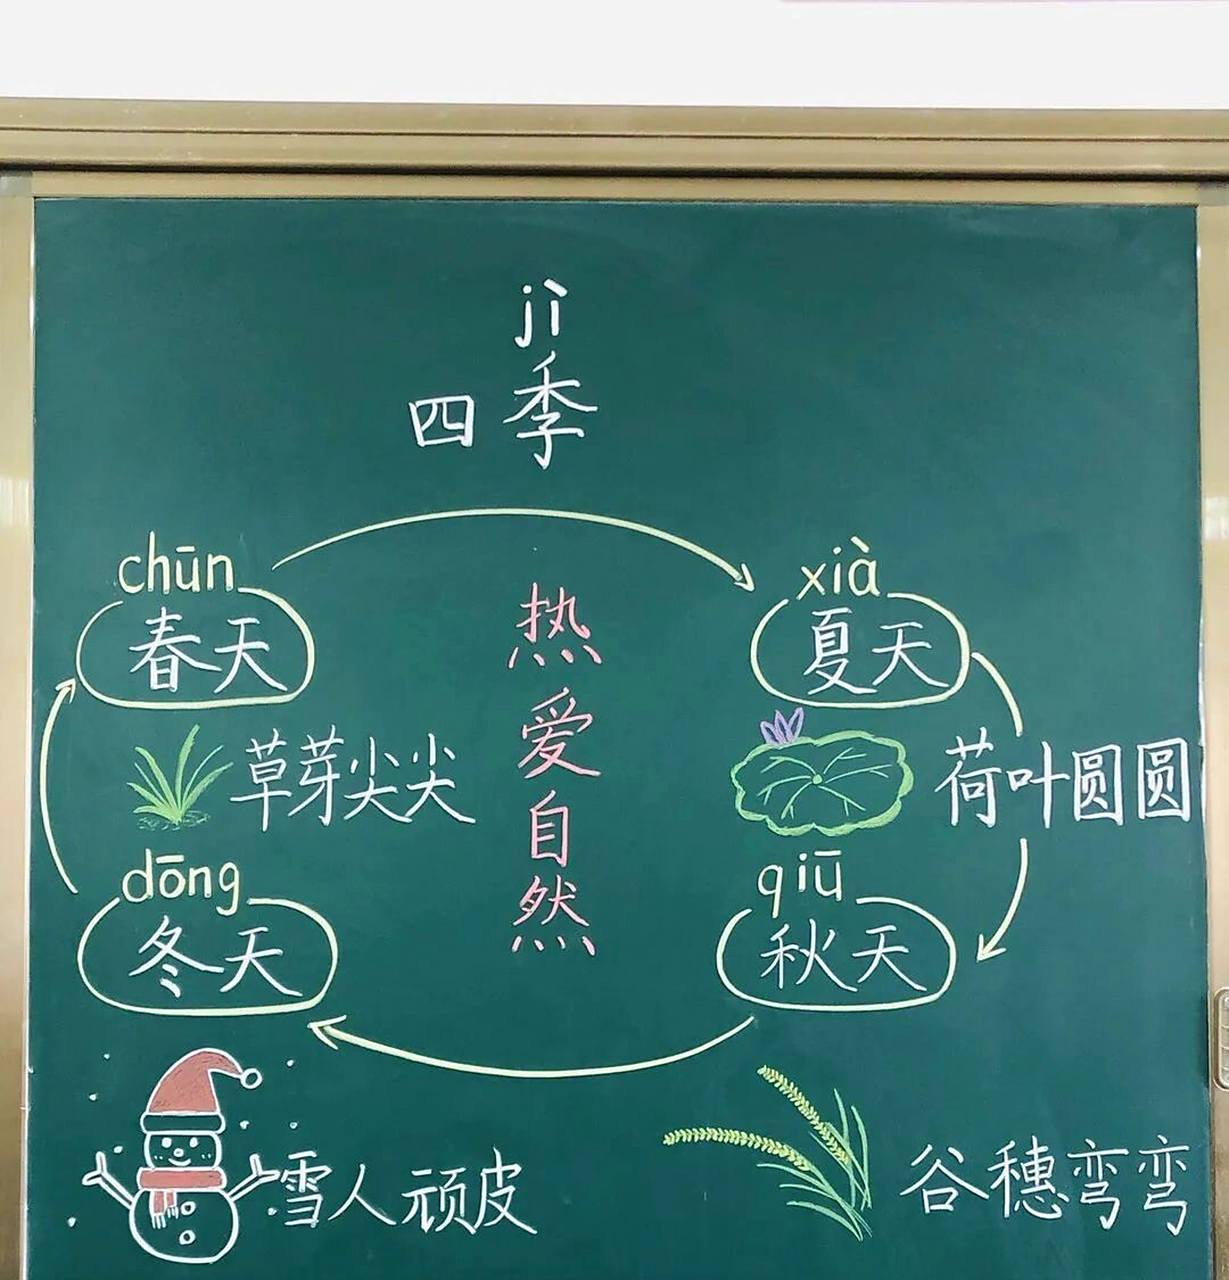 jì
四季
chūn
春天
草芽尖尖
热爱自然
xià
夏天
荷叶圆圆
dōng
冬天
雪人顽皮
qiū
秋天
谷穗弯弯